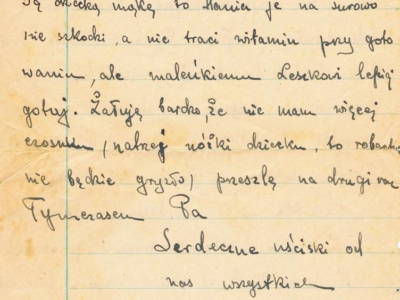 dziecka mąkę to Hania je na surowo
nie szkodzi, a nie traci witamin przy goto
waniu, ale maleńkiemu Leszkowi lepiej
gotuj. Żałuję bardzo, że nie mam więcej
czosnku (natrzej nóżki dziecku, to robactwo
nie będzie gryzło) przeszlę na drugi raz
Tymczasem Pa
Serdeczne uściski od
nas wszystkich